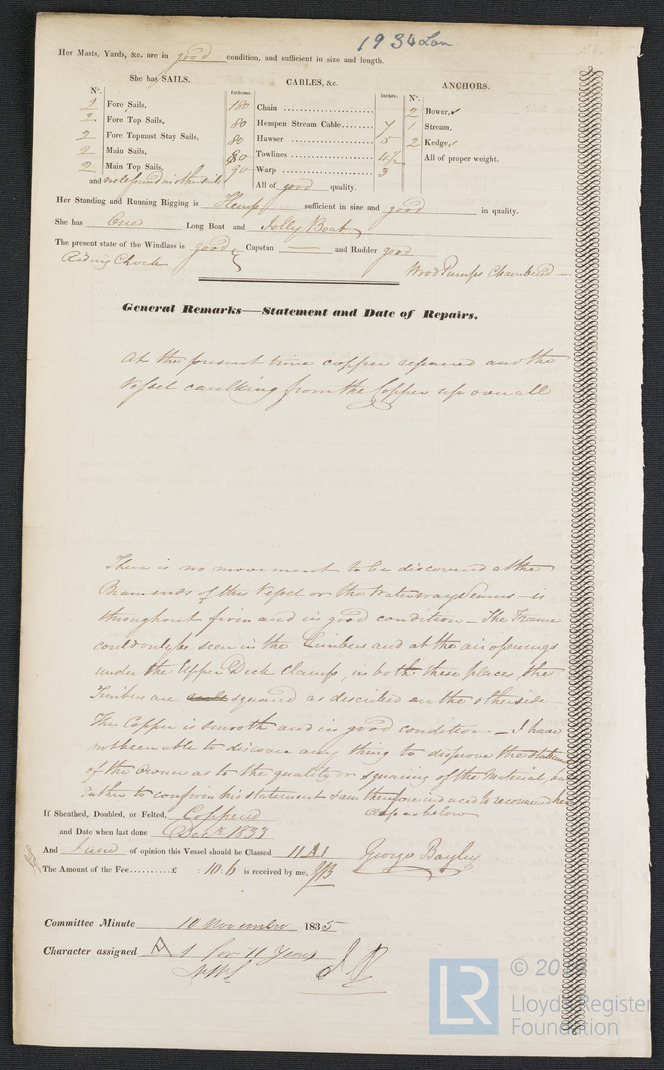 1934 Lon
Her Masts, Yards, &c. are in good condition, and sufficient in size and length.
She has SAILS.
CABLES, &c.
ANCHORS.
No.
Fathoms.
Inches.
No.
2 Fore Sails, 180 Chain 2 Bower,
2 Fore Top Sails, 80 Hempen Stream Cable 7 1 Stream,
2 Fore Topmast Stay Sails, 80 Hawser 5 2 Kedge,
2 Main Sails, 80 Towlines All of proper weight.
2 Main Top Sails, 90 Warp 3
and well found in other sails All of good quality.
Her Standing and Running Rigging is Hemp sufficient in size and good in quality.
She has One Long Boat and Jolly Boat
The present state of the Windlass is good Capstan — and Rudder good
Riding Chocks
Wood Pumps Chambered —
General Remarks—Statement and Date of Repairs.
At the present time copper repaired and the
Vessel caulking from the Copper up over all
There is no movement to be discovered at the
Beam ends of this Vessel or the Waterway Seams - is
throughout firm and in good condition — The Frame
could only be seen in the Limbers and at the air openings
under the Upper Deck Clamps, in both these places, the
Timbers are squared as described on the otherside
The Copper is smooth and in good condition — I have
not been able to discover any thing to disprove the statement
of the Owner as to the quality or squaring of the Material,
rather to confirm his statement I am therefore induced to recommend her
as below
If Sheathed, Doubled, or Felted, Coppered
and Date when last done Decr 1833
And I am of opinion this Vessel should be Classed 11 A1 George Bayley
The Amount of the Fee £ : 10.6 is received by me, GB
Committee Minute 10 November 1835
Character assigned A 1 for 11 Years
LR
Lloyd's Register
Foundation